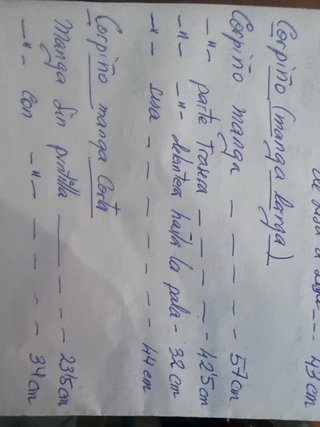 43 cm
Corpiño (manga larga)
Corpiño manga - - - - 57cm
-"- parte Trasera - - - - 42'5cm
-"- -"- delantera hasta la pala - 32cm
-"- sisa - - - - - - - 44cm
Corpiño manga Corta
Manga sin puntilla - - - 23'5cm
-"- con -"- - - - - 34cm